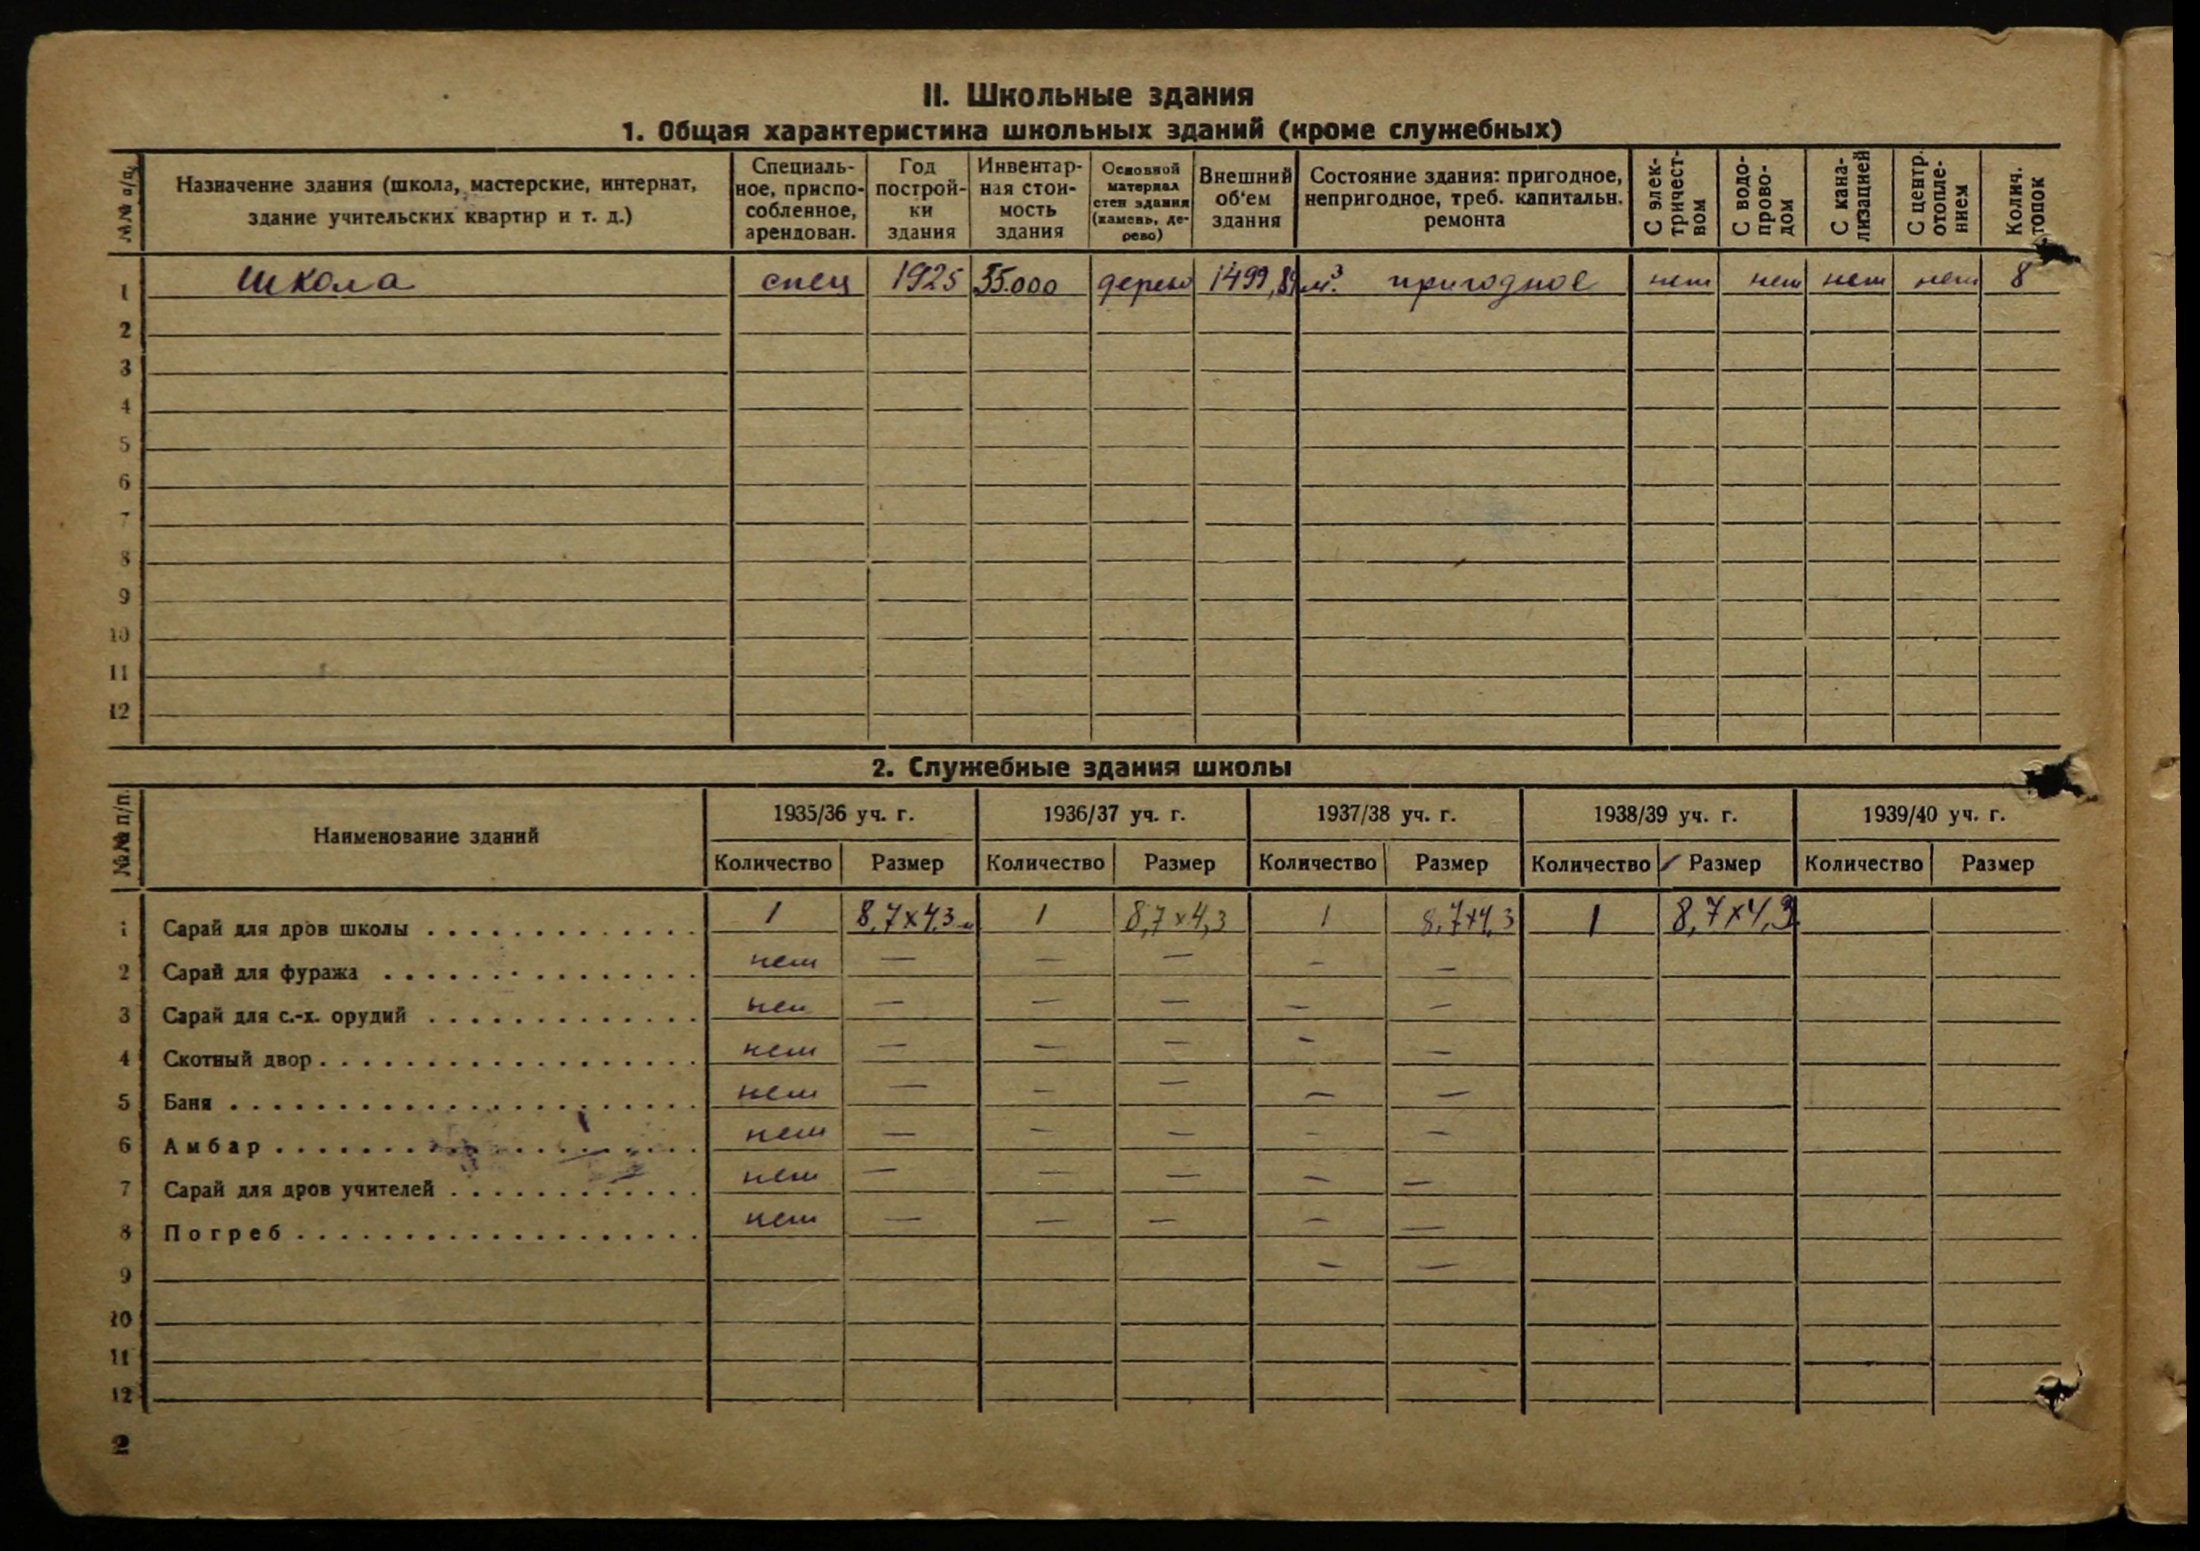 II. Школьные здания
1. Общая характеристика школьных зданий (кроме служебных)
№№ п/п. Назначение здания (школа, мастерские, интернат, здание учительских квартир и т. д.) Специальное, приспособленное, арендован. Год постройки здания Инвентарная стоимость здания Основной материал стен здания (камень, дерево) Внешний об'ем здания Состояние здания: пригодное, непригодное, треб. капитальн. ремонта С электричеством С водопроводом С канализацией С центр. отоплением Колич. топок
1 школа спец 1925 35.000 дерево 1499,84 м³. пригодное нет нет нет нет 8
2
3
4
5
6
7
8
9
10
11
12
2. Служебные здания школы
№№ п/п. Наименование зданий 1935/36 уч. г. 1936/37 уч. г. 1937/38 уч. г. 1938/39 уч. г. 1939/40 уч. г.
Количество Размер Количество Размер Количество Размер Количество Размер Количество Размер
1 Сарай для дров школы 1 8,7×4,3 м 1 8,7×4,3 1 8,7×4,3 1 8,7×4,3
2 Сарай для фуража нет — — — — —
3 Сарай для с.-х. орудий нет — — — — —
4 Скотный двор нет — — — — —
5 Баня нет — — — — —
6 Амбар нет — — — — —
7 Сарай для дров учителей нет — — — — —
8 Погреб нет — — — — —
9 — —
10
11
12
2